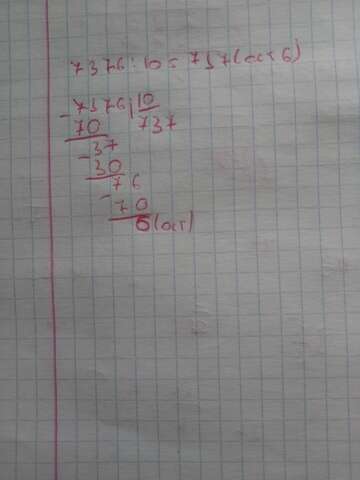 7376 : 10 = 737 (ост 6)
- 7376 | 10
70 737
- 37
30
- 76
70
6 (ост)